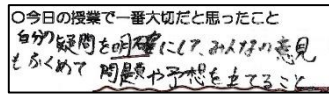 ○今日の授業で一番大切だと思ったこと
自分の疑問を明確にして、みんなの意見
もふくめて 問題や予想を立てること